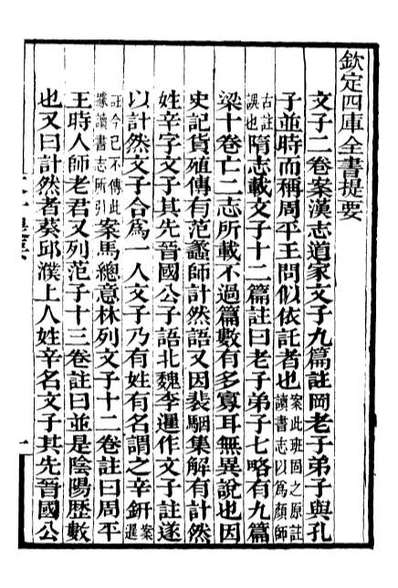 欽定四庫全書提要
文子二卷案漢志道家文子九篇註岡老子弟子與孔
子並時而稱周平王問似依託者也案此班固之原註讀書志以為顏師
古註誤也隋志載文子十二篇註曰老子弟子七略有九篇
梁十卷亡二志所載不過篇數有多寡耳無異說也因
史記貨殖傳有范蠡師計然語又因裴駰集解有計然
姓辛字文子其先晉國公子語北魏李暹作文子註遂
以計然文子合為一人文子乃有姓有名謂之辛鈃案暹
註今已不傳此據讀書志所引案馬總意林列文子十二卷註曰周平
王時人師老君又列范子十三卷註曰並是陰陽歷數
也又曰計然者葵邱濮上人姓辛名文子其先晉國公
一